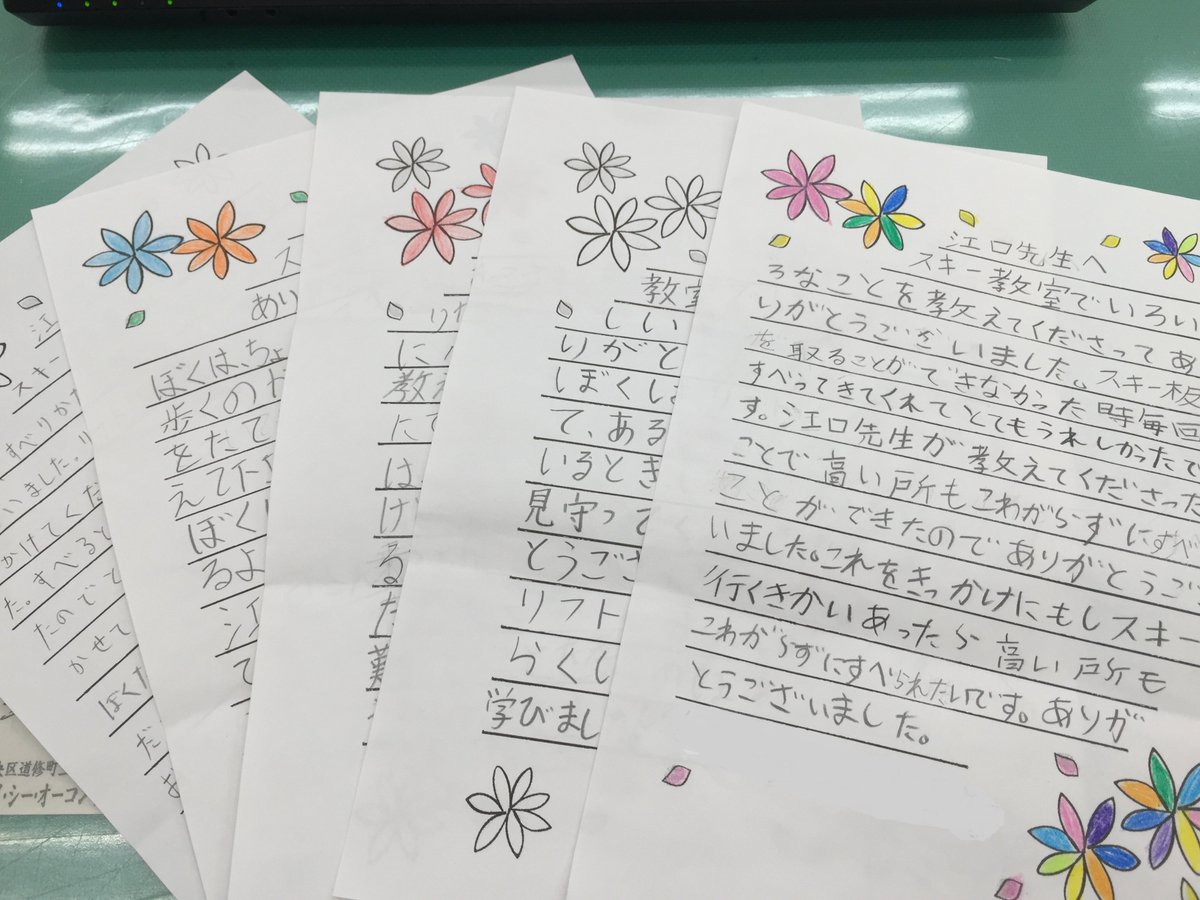 江
スキー
すべりかた
いました。リ
かけてくだ
た。すべると
たのでて
かせて
ぼくた
だ
区道修町
シー・オーコン
ス
あり
ぼくは、ちょ
歩くの
をたて
えて下
ぼく
るよ
江
て
りが
に
教
に
は
け
る
た
教室
しい
りがと
しぼくは
て、ある
いるとき
見守って
とうござ
リフト
らくし
学びまし
江口先生へ
スキー教室でいろい
ろなことを教えてくださってあ
りがとうございました。スキー板
を取ることができなかった時毎回
すべってきてくれてとてもうれしかったで
す。江口先生が教えてくださった
ことで高い所もこわがらずにすべ
ことができたのでありがとうご
いました。これをきっかけにもしスキー
行くきかいあったら高い所も
こわがらずにすべられたいです。ありが
とうございました。